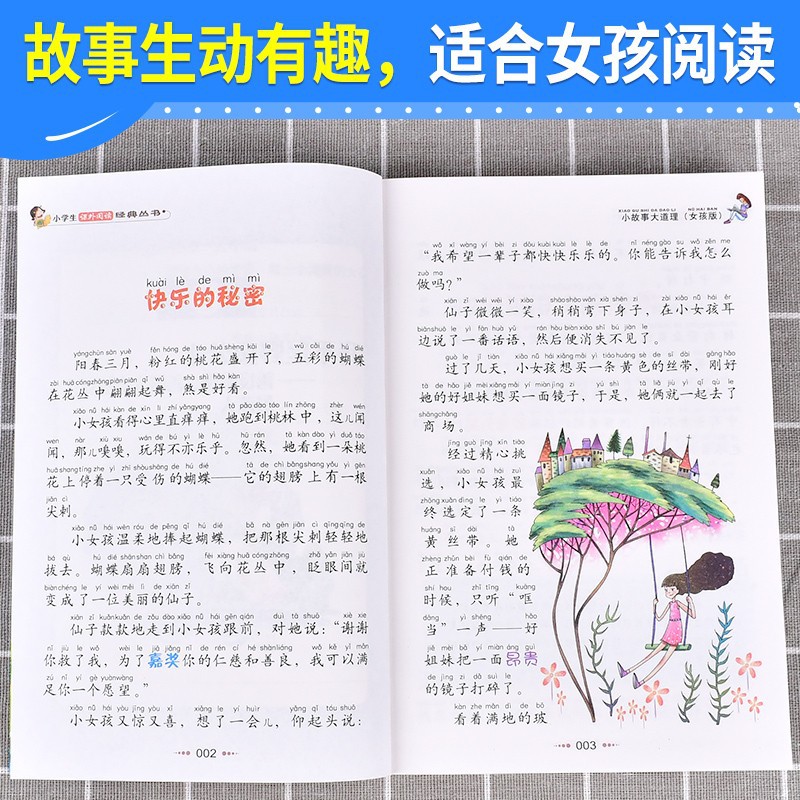 故事生动有趣，适合女孩阅读
小学生课外阅读经典丛书
kuài lè de mì mì
快乐的秘密
阳春三月，粉红的桃花盛开了，五彩的蝴蝶
在花丛中翩翩起舞，煞是好看。
小女孩看得心里直痒痒，她跑到桃林中，这儿闻
闻，那儿嗅嗅，玩得不亦乐乎。忽然，她看到一朵桃
花上停着一只受伤的蝴蝶——它的翅膀上有一根
尖刺。
小女孩温柔地捧起蝴蝶，把那根尖刺轻轻地
拔去。蝴蝶扇扇翅膀，飞向花丛中，眨眼间就
变成了一位美丽的仙子。
仙子款款地走到小女孩跟前，对她说：“谢谢
你救了我，为了嘉奖你的仁慈和善良，我可以满
足你一个愿望。”
小女孩又惊又喜，想了一会儿，仰起头说：
002
XIAO GU SHI DA DAO LI NÜ HAI BAN
小故事大道理（女孩版）
“我希望一辈子都快快乐乐的。你能告诉我怎么
做吗？”
仙子微微一笑，稍稍弯下身子，在小女孩耳
边说了一番话语，然后便消失不见了。
过了几天，小女孩想买一条黄色的丝带，刚好
她的好姐妹想买一面镜子，于是，她俩就一起去了
商场。
经过精心挑
选，小女孩最
终选定了一条
黄丝带。她
正准备付钱的
时候，只听“哐
当”一声——好
姐妹把一面昂贵
的镜子打碎了。
看着满地的玻
003